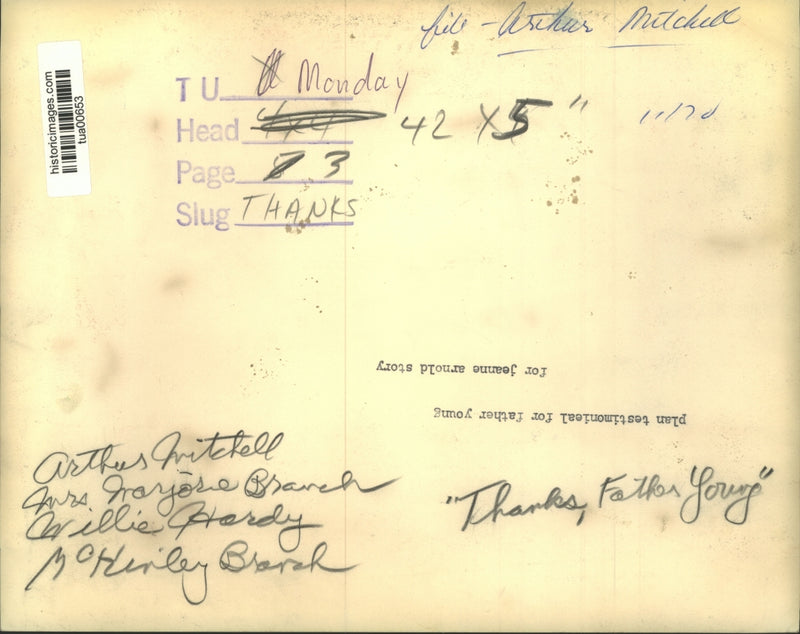 file - Arthur Mitchell
historicimages.com
tua00653
T U Monday
Head 4x4 42 X 5"
11/70
Page 7 3
Slug THANKS
for jeanne arnold story
plan testimonieal for father young
Arthur Mitchell
Mrs Marjorie Branch
Willie Hardy
McKinley Branch
"Thanks, Father Young"